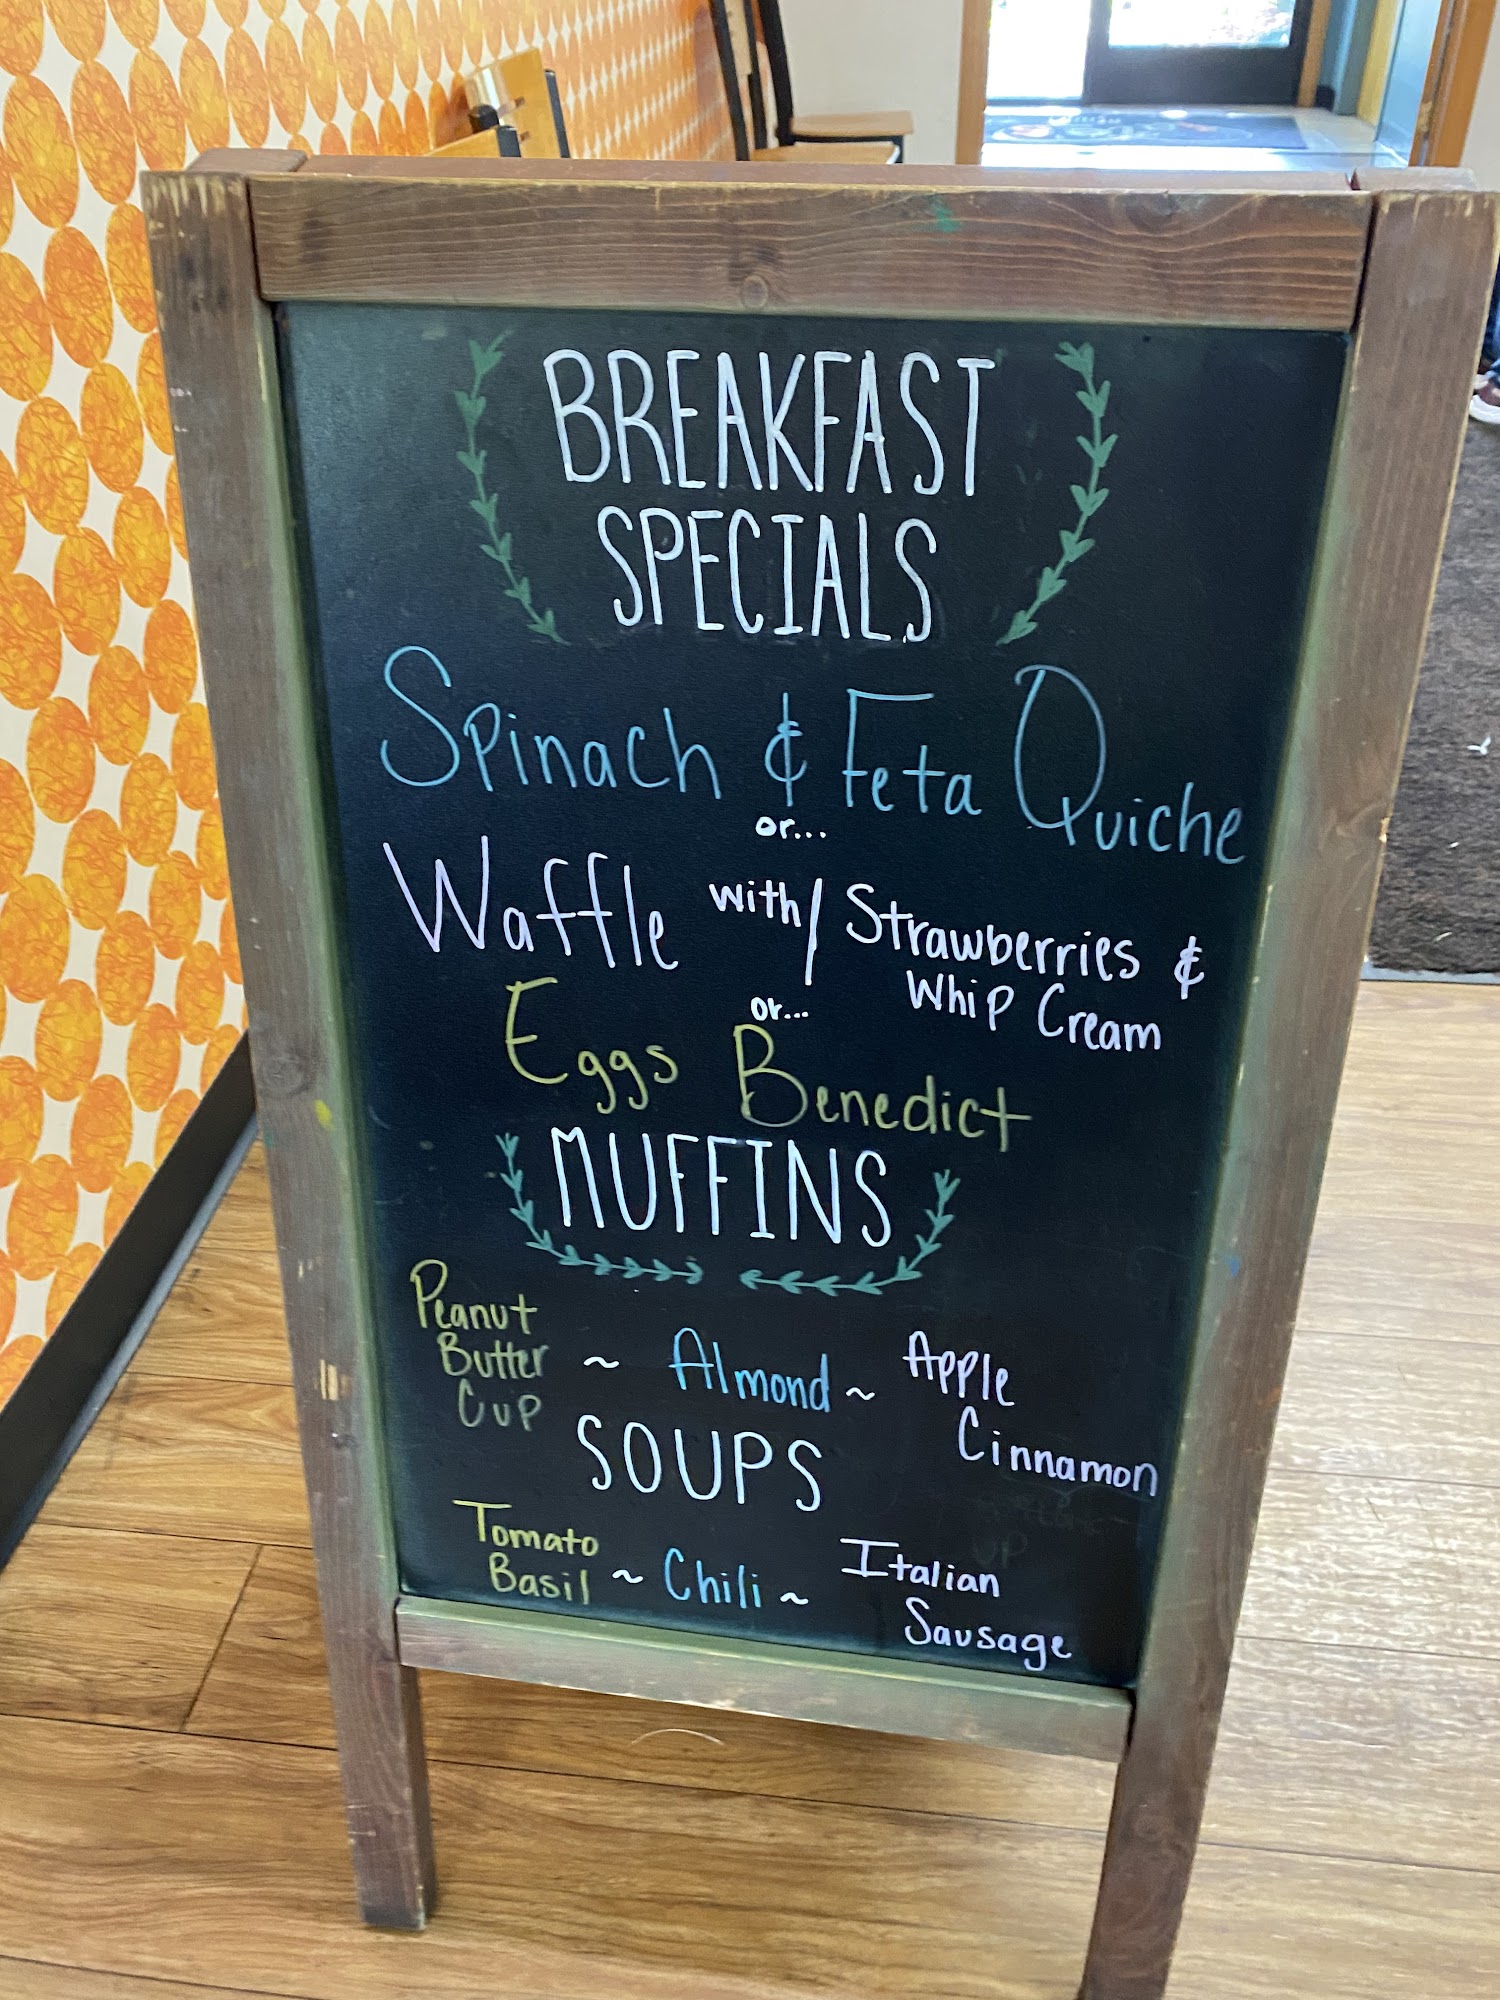 BREAKFAST
SPECIALS
Spinach & Feta Quiche
or...
Waffle with/ Strawberries &
Whip Cream
or...
Eggs Benedict
MUFFINS
Peanut
Butter
Cup
~ Almond ~
Apple
Cinnamon
SOUPS
Tomato
Basil
~ Chili ~
Italian
Sausage